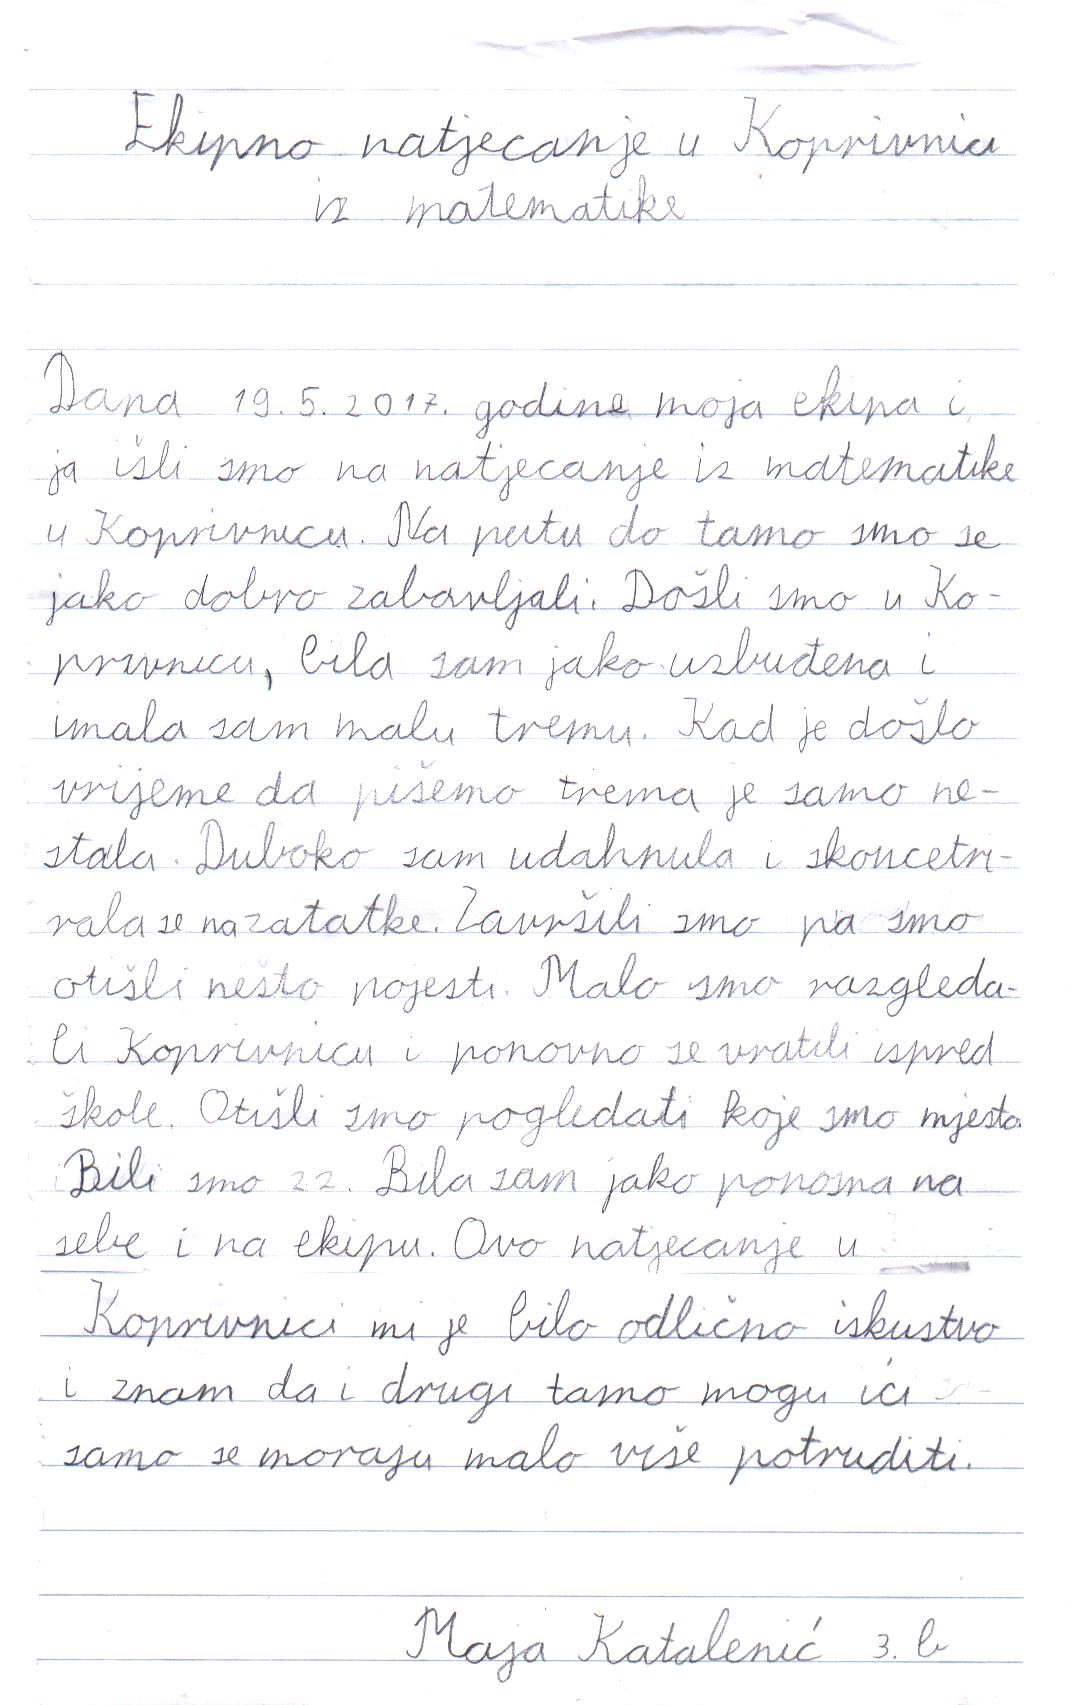 Ekipno natjecanje u Koprivnici
iz matematike
Dana 19.5.2017. godine moja ekipa i
ja išli smo na natjecanje iz matematike
u Koprivnicu. Na putu do tamo smo se
jako dobro zabavljali. Došli smo u Ko-
privnicu, bila sam jako uzbuđena i
imala sam malu tremu. Kad je došlo
vrijeme da pišemo trema je samo ne-
stala. Duboko sam udahnula i skoncetri-
rala se na zatatke. Završili smo pa smo
otišli nešto pojesti. Malo smo razgleda-
li Koprivnicu i ponovno se vratili ispred
škole. Otišli smo pogledati koje smo mjesto.
Bili smo 22. Bila sam jako ponosna na
sebe i na ekipu. Ovo natjecanje u
Koprivnici mi je bilo odlično iskustvo
i znam da i drugi tamo mogu ići
samo se moraju malo više potruditi.
Maja Katalenić 3. b